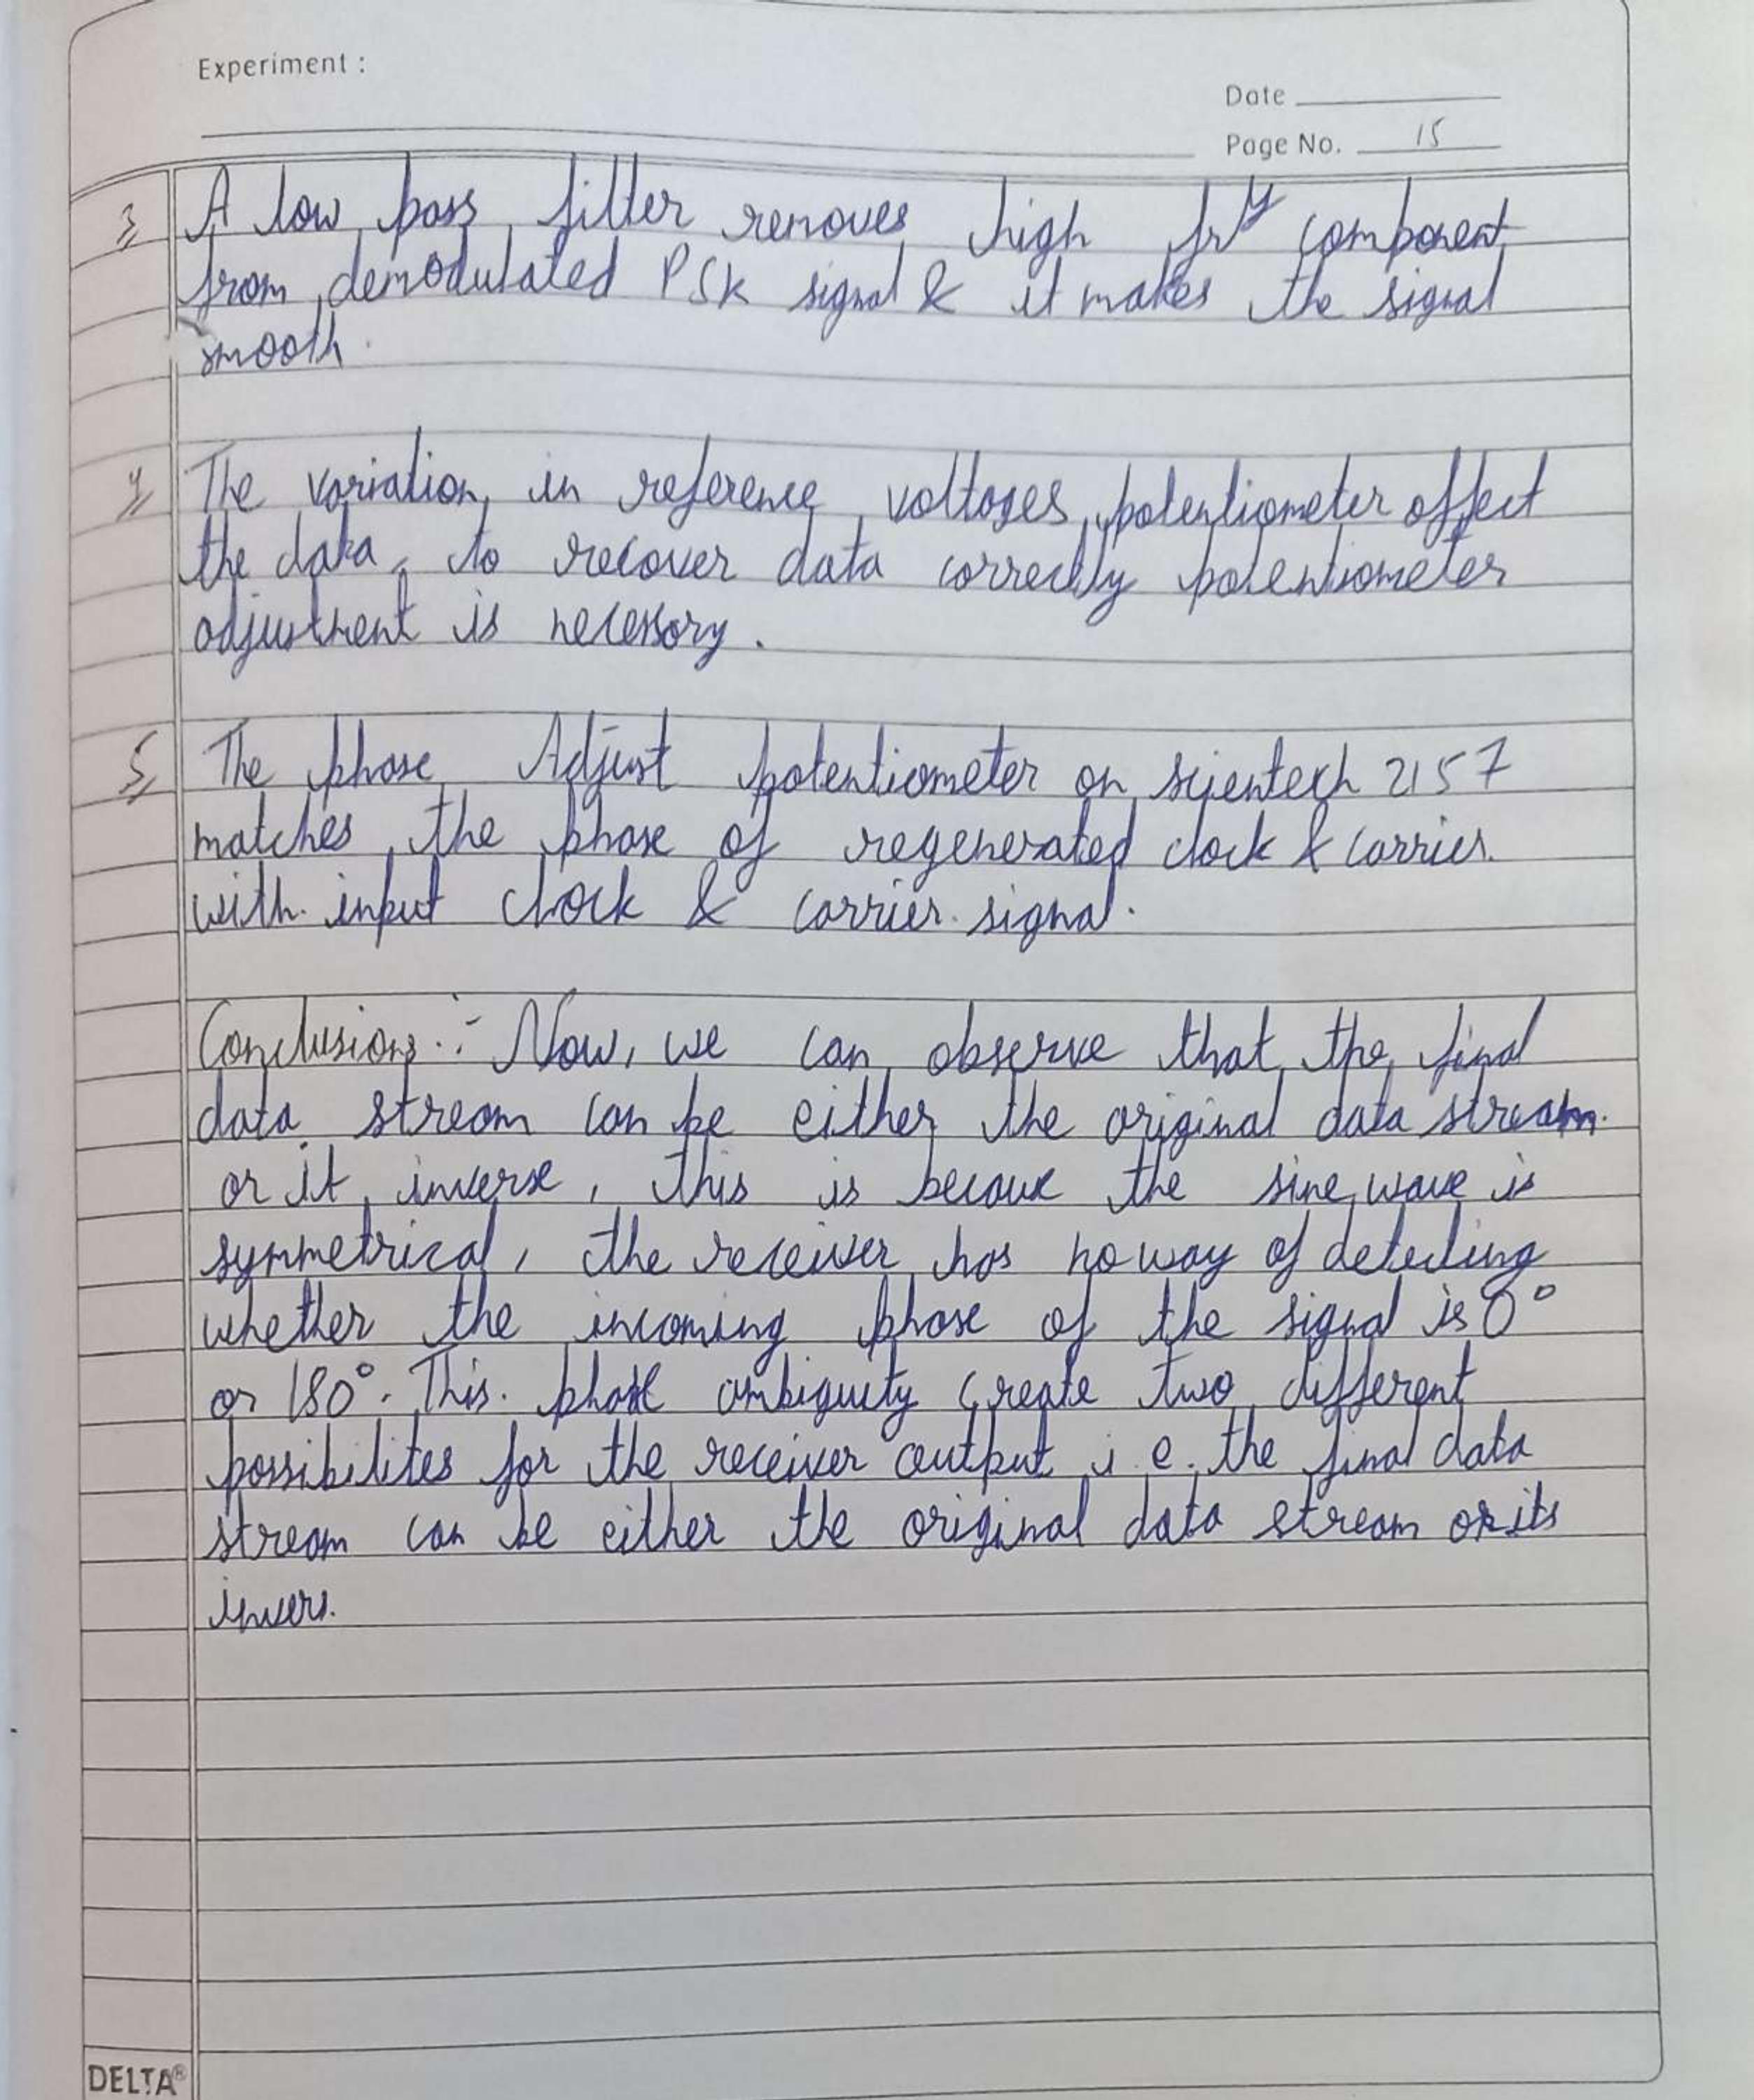 Experiment :
Date
Page No. 15
3 A low pass filter removes high frʸ component
from demodulated PSK signal & it makes the signal
smooth.
4 The variation in reference voltages potentiometer affect
the data, to recover data correctly potentiometer
adjustment is necessory.
5 The phase Adjust potentiometer on scientech 2157
matches the phase of regenerated clock & carrier.
with input clock & carrier signal.
Conclusion :- Now, we can observe that the final
data stream can be either the original data stream.
or it inverse, this is because the sine wave is
symmetrical, the receiver has no way of detecting
whether the incoming phase of the signal is 0°
or 180°. This. phase ambiguity create two different
possibilites for the receiver output i.e. the final data
stream can be either the original data stream or its
invers.
DELTA®